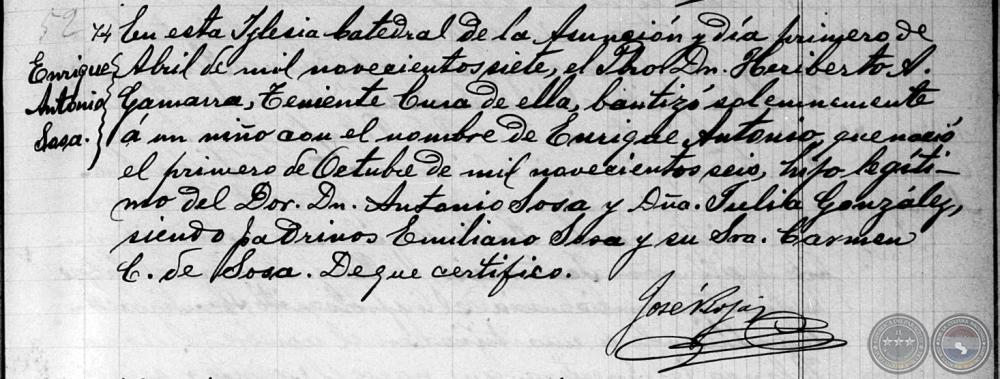 52 74 En esta Iglesia Catedral de la Asunción y día primero de
Enrique Abril de mil novecientos siete, el Pbro Dn. Heriberto A.
Antonio Gamarra, Teniente Cura de ella, bautizó solemnemente
Sosa. á un niño con el nombre de Enrique Antonio, que nació
el primero de Octubre de mil novecientos seis, hijo legíti-
mo del Dor. Dn. Antonio Sosa y Dña. Julia González,
siendo padrinos Emiliano Sosa y su Sra. Carmen
C. de Sosa. De que certifico.
José Rojas